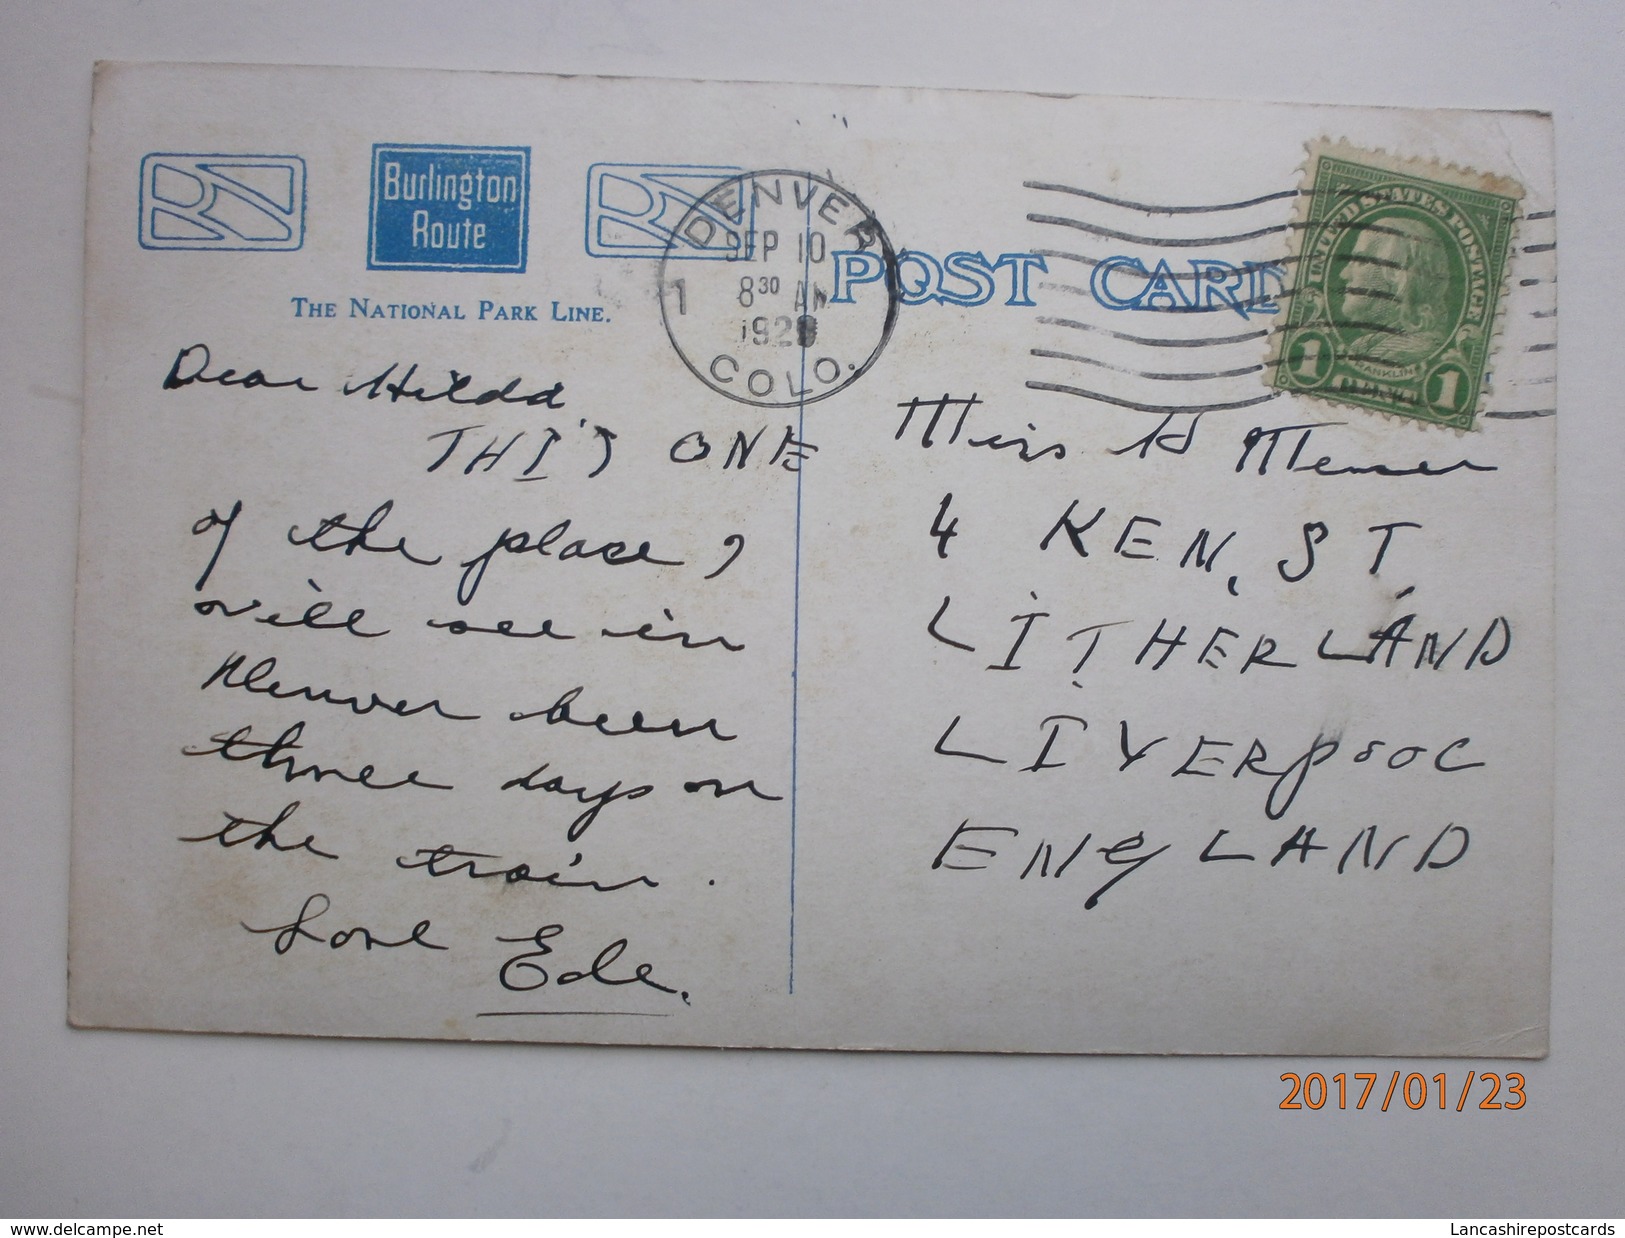 Burlington
Route
THE NATIONAL PARK LINE.
DENVER
SEP 10
8 30 AM
1
COLO.
POST CARD
UNITED STATES POSTAGE
FRANKLIN
1 1
Dear Hilda,
THI'S ONE
of the place I
will see in
Denver been
three days on
the train.
Love Ede.
Miss H
4 KEN. ST.
LITHERLAND
LIVERPOOL
ENGLAND
2017/01/23
delcampe.net
Lancashirepostcards